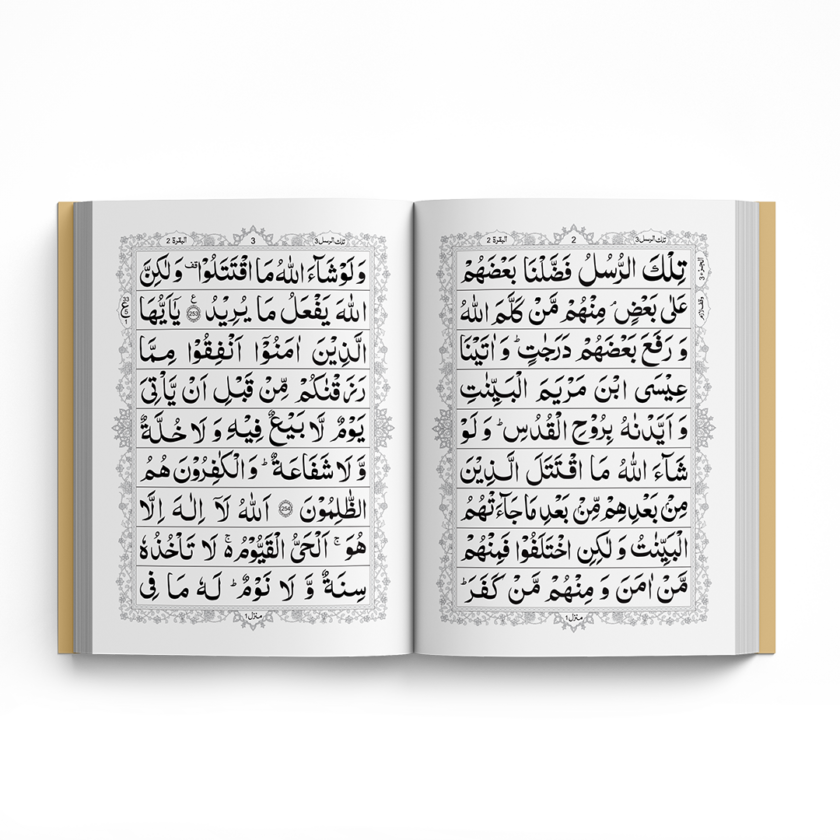 البقرة 2
2
تلك الرسل 3
تِلْكَ الرُّسُلُ فَضَّلْنَا بَعْضَهُمْ
عَلٰی بَعْضٍ ۘ مِنْهُمْ مَّنْ کَلَّمَ اللّٰهُ
وَ رَفَعَ بَعْضَهُمْ دَرَجٰتٍ ؕ وَ اٰتَیْنَا
عِیْسَی ابْنَ مَرْیَمَ الْبَیِّنٰتِ
وَ اَیَّدْنٰهُ بِرُوْحِ الْقُدُسِ ؕ وَ لَوْ
شَآءَ اللّٰهُ مَا اقْتَتَلَ الَّذِیْنَ
مِنْۢ بَعْدِهِمْ مِّنْۢ بَعْدِ مَا جَآءَتْهُمُ
الْبَیِّنٰتُ وَ لٰکِنِ اخْتَلَفُوْا فَمِنْهُمْ
مَّنْ اٰمَنَ وَ مِنْهُمْ مَّنْ کَفَرَ ؕ
منزل ۱
البقرة 2
3
تلك الرسل 3
وَ لَوْ شَآءَ اللّٰهُ مَا اقْتَتَلُوْا قف وَ لٰکِنَّ
اللّٰهَ یَفْعَلُ مَا یُرِیْدُ 253 یٰۤاَیُّهَا
الَّذِیْنَ اٰمَنُوْۤا اَنْفِقُوْا مِمَّا
رَزَقْنٰکُمْ مِّنْ قَبْلِ اَنْ یَّاْتِیَ
یَوْمٌ لَّا بَیْعٌ فِیْهِ وَ لَا خُلَّةٌ
وَّ لَا شَفَاعَةٌ ؕ وَ الْکٰفِرُوْنَ هُمُ
الظّٰلِمُوْنَ 254 اَللّٰهُ لَاۤ اِلٰهَ اِلَّا
هُوَ ۚ اَلْحَیُّ الْقَیُّوْمُ ۬ۚ لَا تَاْخُذُهٗ
سِنَةٌ وَّ لَا نَوْمٌ ؕ لَهٗ مَا فِی
منزل ۱